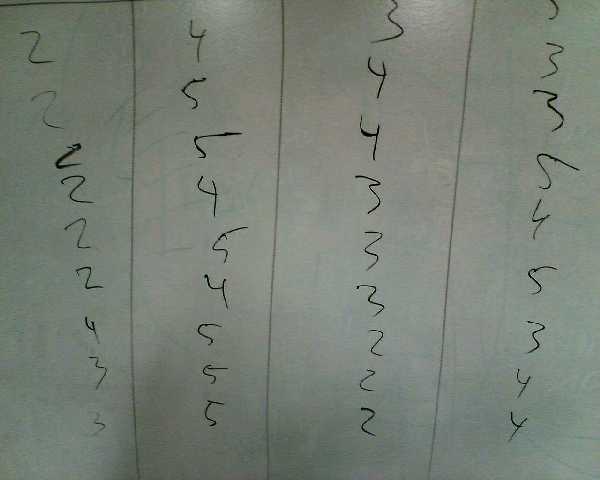 2 4 3
2 5 4 3
2 5 4 3
2 4 3 5
2 5 3 4
2 4 3 5
4 5 2 3
3 5 2 4
3 5 2 4